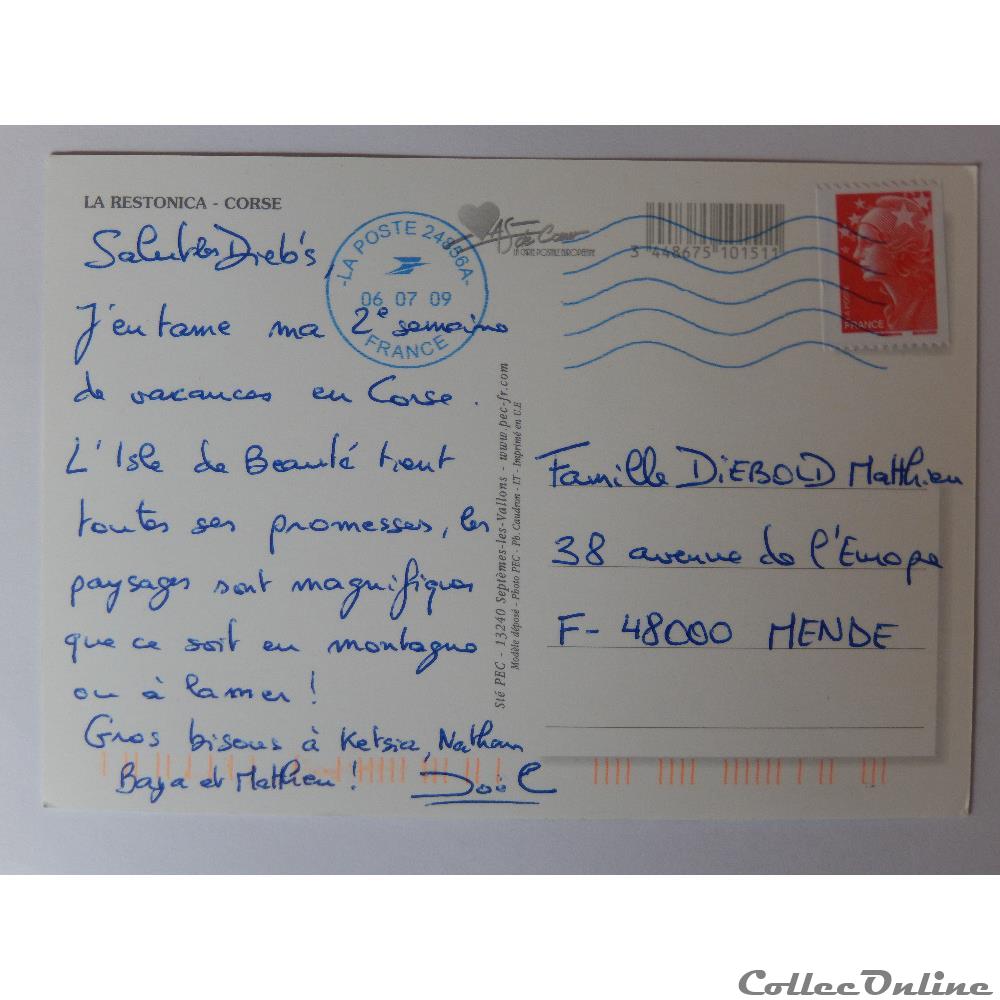 LA RESTONICA - CORSE
Salut les Dieb's,
J'entame ma 2e semaine
de vacances en Corse.
L'Isle de Beauté tient
toutes ses promesses, les
paysages sont magnifiques
que ce soit en montagne
ou à la mer !
Gros bisous à Ketsia, Nathan
Baya et Matthieu !
LA POSTE 24856A
06 07 09
FRANCE
As de Cœur
LA CARTE POSTALE EUROPÉENNE
3 448675 101511
FRANCE
Sté PEC - 13240 Septèmes-les-Vallons - www.pec-fr.com
Modèle déposé - Photo PEC - Ph. Caudron - LT - Imprimé en U.E
Famille DIEBOLD Matthieu
38 avenue de l'Europe
F- 48000 MENDE
CollecOnline